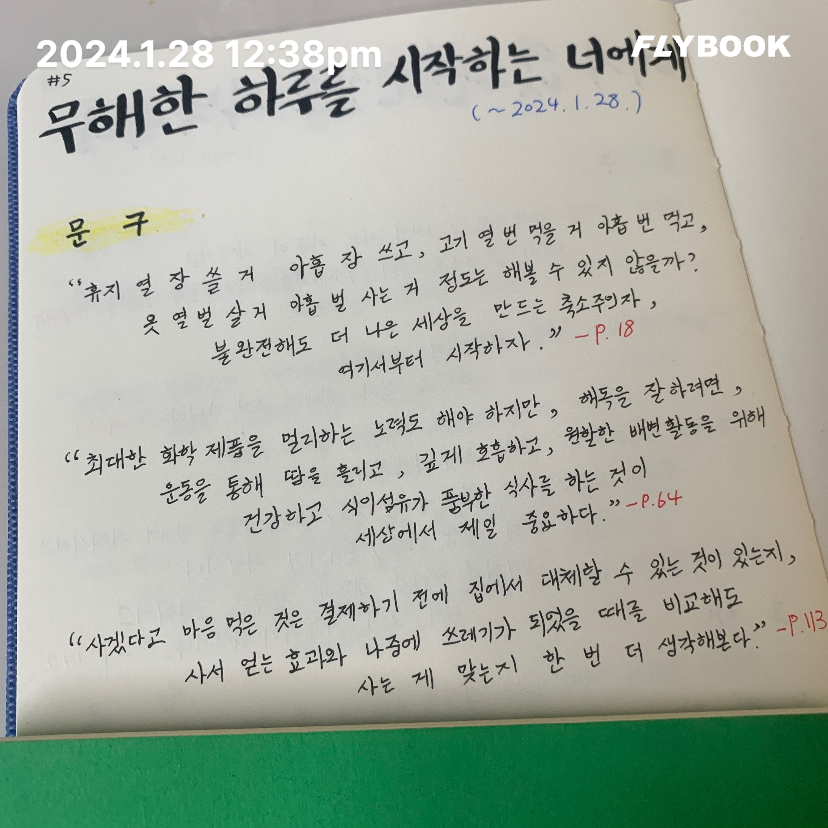 2024.1.28 12:38pm
FLYBOOK
#5
무해한 하루를 시작하는 너에게
(~2024.1.28.)
문구
“휴지 열 장 쓸 거 아홉 장 쓰고, 고기 열 번 먹을 거 아홉 번 먹고,
옷 열 벌 살 거 아홉 벌 사는 거 정도는 해볼 수 있지 않을까?
불완전해도 더 나은 세상을 만드는 축소주의자,
여기서부터 시작하자.” -P.18
“최대한 화학 제품을 멀리하는 노력도 해야 하지만, 해독을 잘하려면,
운동을 통해 땀을 흘리고, 깊게 호흡하고, 원할한 배변활동을 위해
건강하고 식이섬유가 풍부한 식사를 하는 것이
세상에서 제일 중요하다.” -P.64
“사겠다고 마음 먹은 것은 결제하기 전에 집에서 대체할 수 있는 것이 있는지,
사서 얻는 효과와 나중에 쓰레기가 되었을 때를 비교해도
사는 게 맞는지 한 번 더 생각해본다.” -P.113